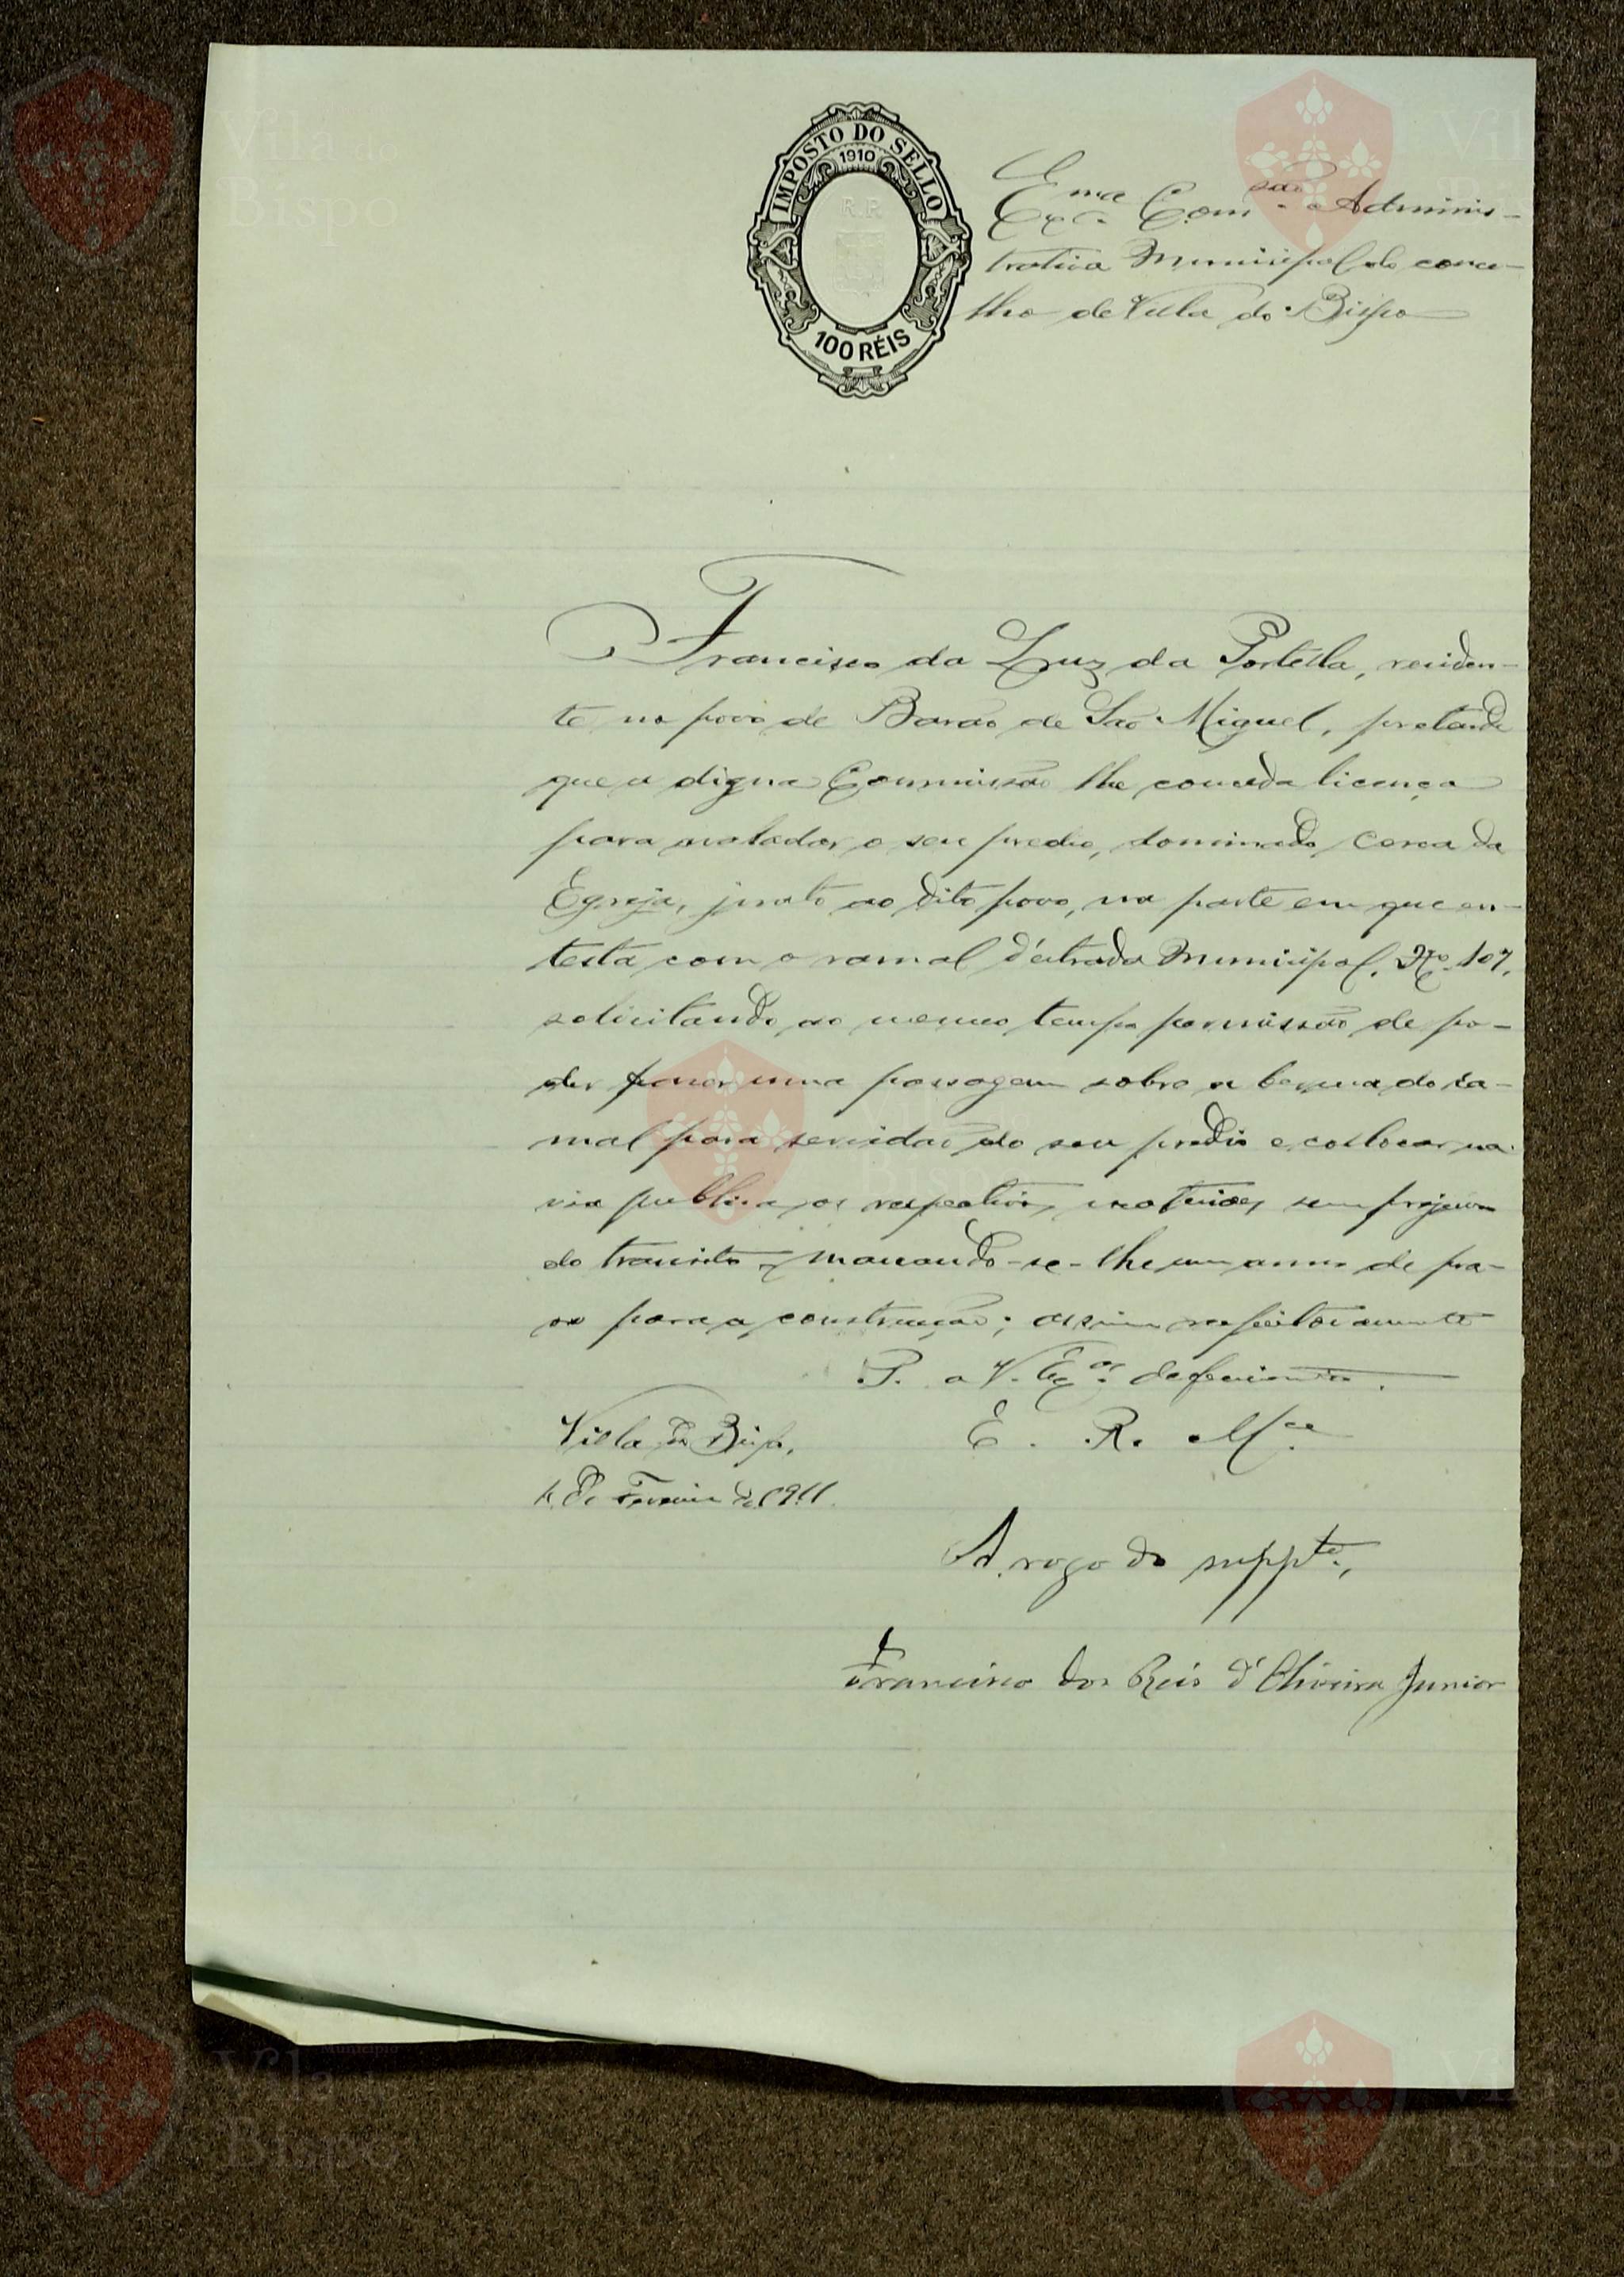 IMPOSTO DO SELLO
1910
R. R.
100 RÉIS
Exma Comsão Adminis-
trativa Municipal do conce-
lho de Villa do Bispo
Francisco da Luz da Portella, residen-
te no povo de Barão de São Miguel, pretende
que a digna Commissão lhe conceda licença
para o seu predio, dominado Cerca da
Egreja, junto ao dito povo, na parte em que en-
testa com o ramal d'estrada Municipal, No. 107,
solicitando ao mesmo tempo permissão de po-
der fazer uma passagem sobre a berma do ra-
mal para servidão do seu predio e collocar na
via publica os respectivos materiaes sem prejuizo
do transito, marcando-se-lhe um anno de pra-
so para a construcção; assim respeitosamente
P. a V. Exas. deferimento.
Villa do Bispo,
E. R. Mce
de Fevereiro de 1911.
A rogo do suppte,
Francisco dos Reis d'Oliveira Junior
Município
Vila do
Bispo